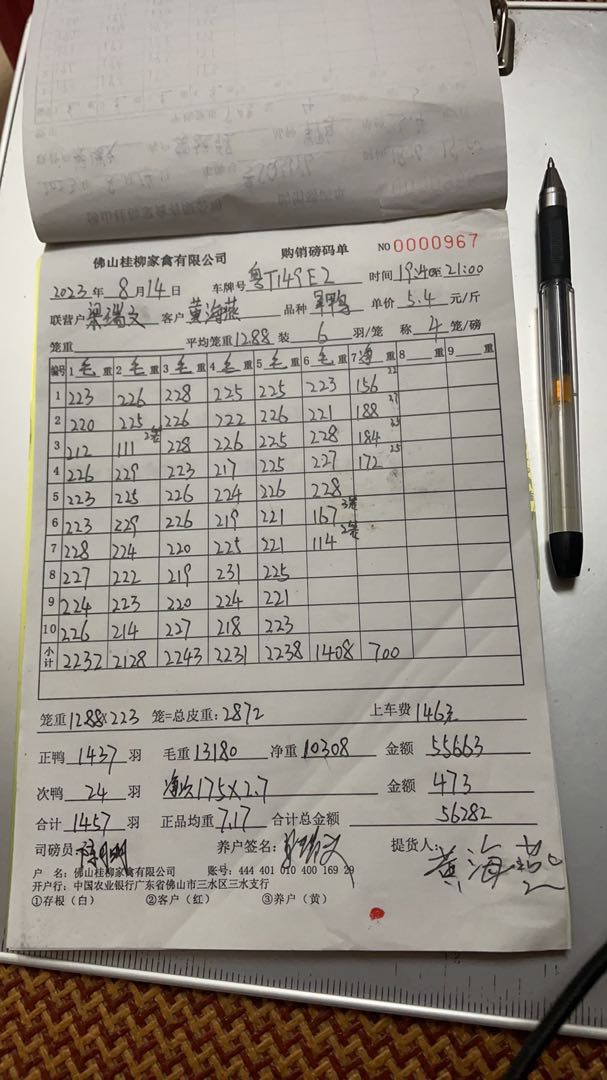 佛山桂柳家禽有限公司 购销磅码单 NO 0000967
2023年8月14日 车牌号 粤T149E2 时间 19:40至21:00
联营户 梁瑞文 客户 黄海燕 品种 鸭 单价 5.4 元/斤
笼重 平均笼重 1288 装 6 羽/笼 称 4 笼/磅
编号 1 毛 重 2 毛 重 3 毛 重 4 毛 重 5 毛 重 6 毛 重 7 净 重 8 重 9 重
1 223 226 228 225 225 223 156 22
2 220 225 226 222 226 221 188 27
3 212 111 2笼 228 226 225 228 184
4 226 229 223 217 225 227 172 25
5 223 225 226 224 226 228
6 223 229 226 219 221 167 3笼
7 228 224 220 225 221 114 2笼
8 227 222 219 231 225
9 224 223 220 224 221
10 226 214 227 218 223
小计 2232 2128 2243 2231 2238 1408 700
笼重 1288×223 笼=总皮重: 2872 上车费 146元
正鸭 1437 羽 毛重 13180 净重 10308 金额 55663
次鸭 24 羽 175×2.7 金额 473
合计 1457 羽 正品均重 7.17 合计总金额 56282
司磅员: 养户签名: 梁瑞文 提货人: 黄海燕
户 名: 佛山桂柳家禽有限公司 账号: 444 401 010 400 169 29
开户行: 中国农业银行广东省佛山市三水区三水支行
①存根(白) ②客户(红) ③养户(黄)